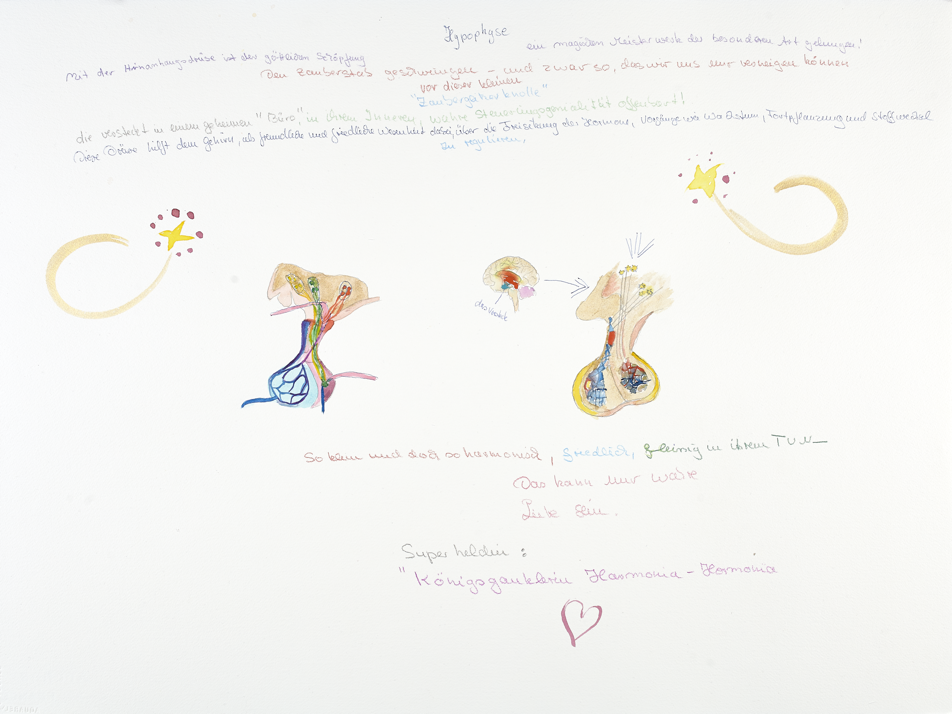 Hypophyse
Mit der Hirnanhangsdrüse ist der göttlichen Schöpfung ein magisches Meisterwerk der besonderen Art gelungen!
Den Zauberstab geschwungen – und zwar so, dass wir uns nur verneigen können
vor dieser kleinen
"Zauberzahorknolle"
die versteckt in einem geheimen "Büro", in ihrem Inneren, wahre Steuerungsgenialität offenbart!
Diese Drüse hilft dem Gehirn, als freundliche und friedliche Wesenheit dabei, über die Freisetzung der Hormone, Vorgänge wie Wachstum, Fortpflanzung und Stoffwechsel
zu regulieren.
So klein und doch so harmonisch, friedlich, fleissig in ihrem TUN –
Das kann nur wahre
Liebe sein.
Superheldin :
" Königsgauklerin Harmonia - Hormonia